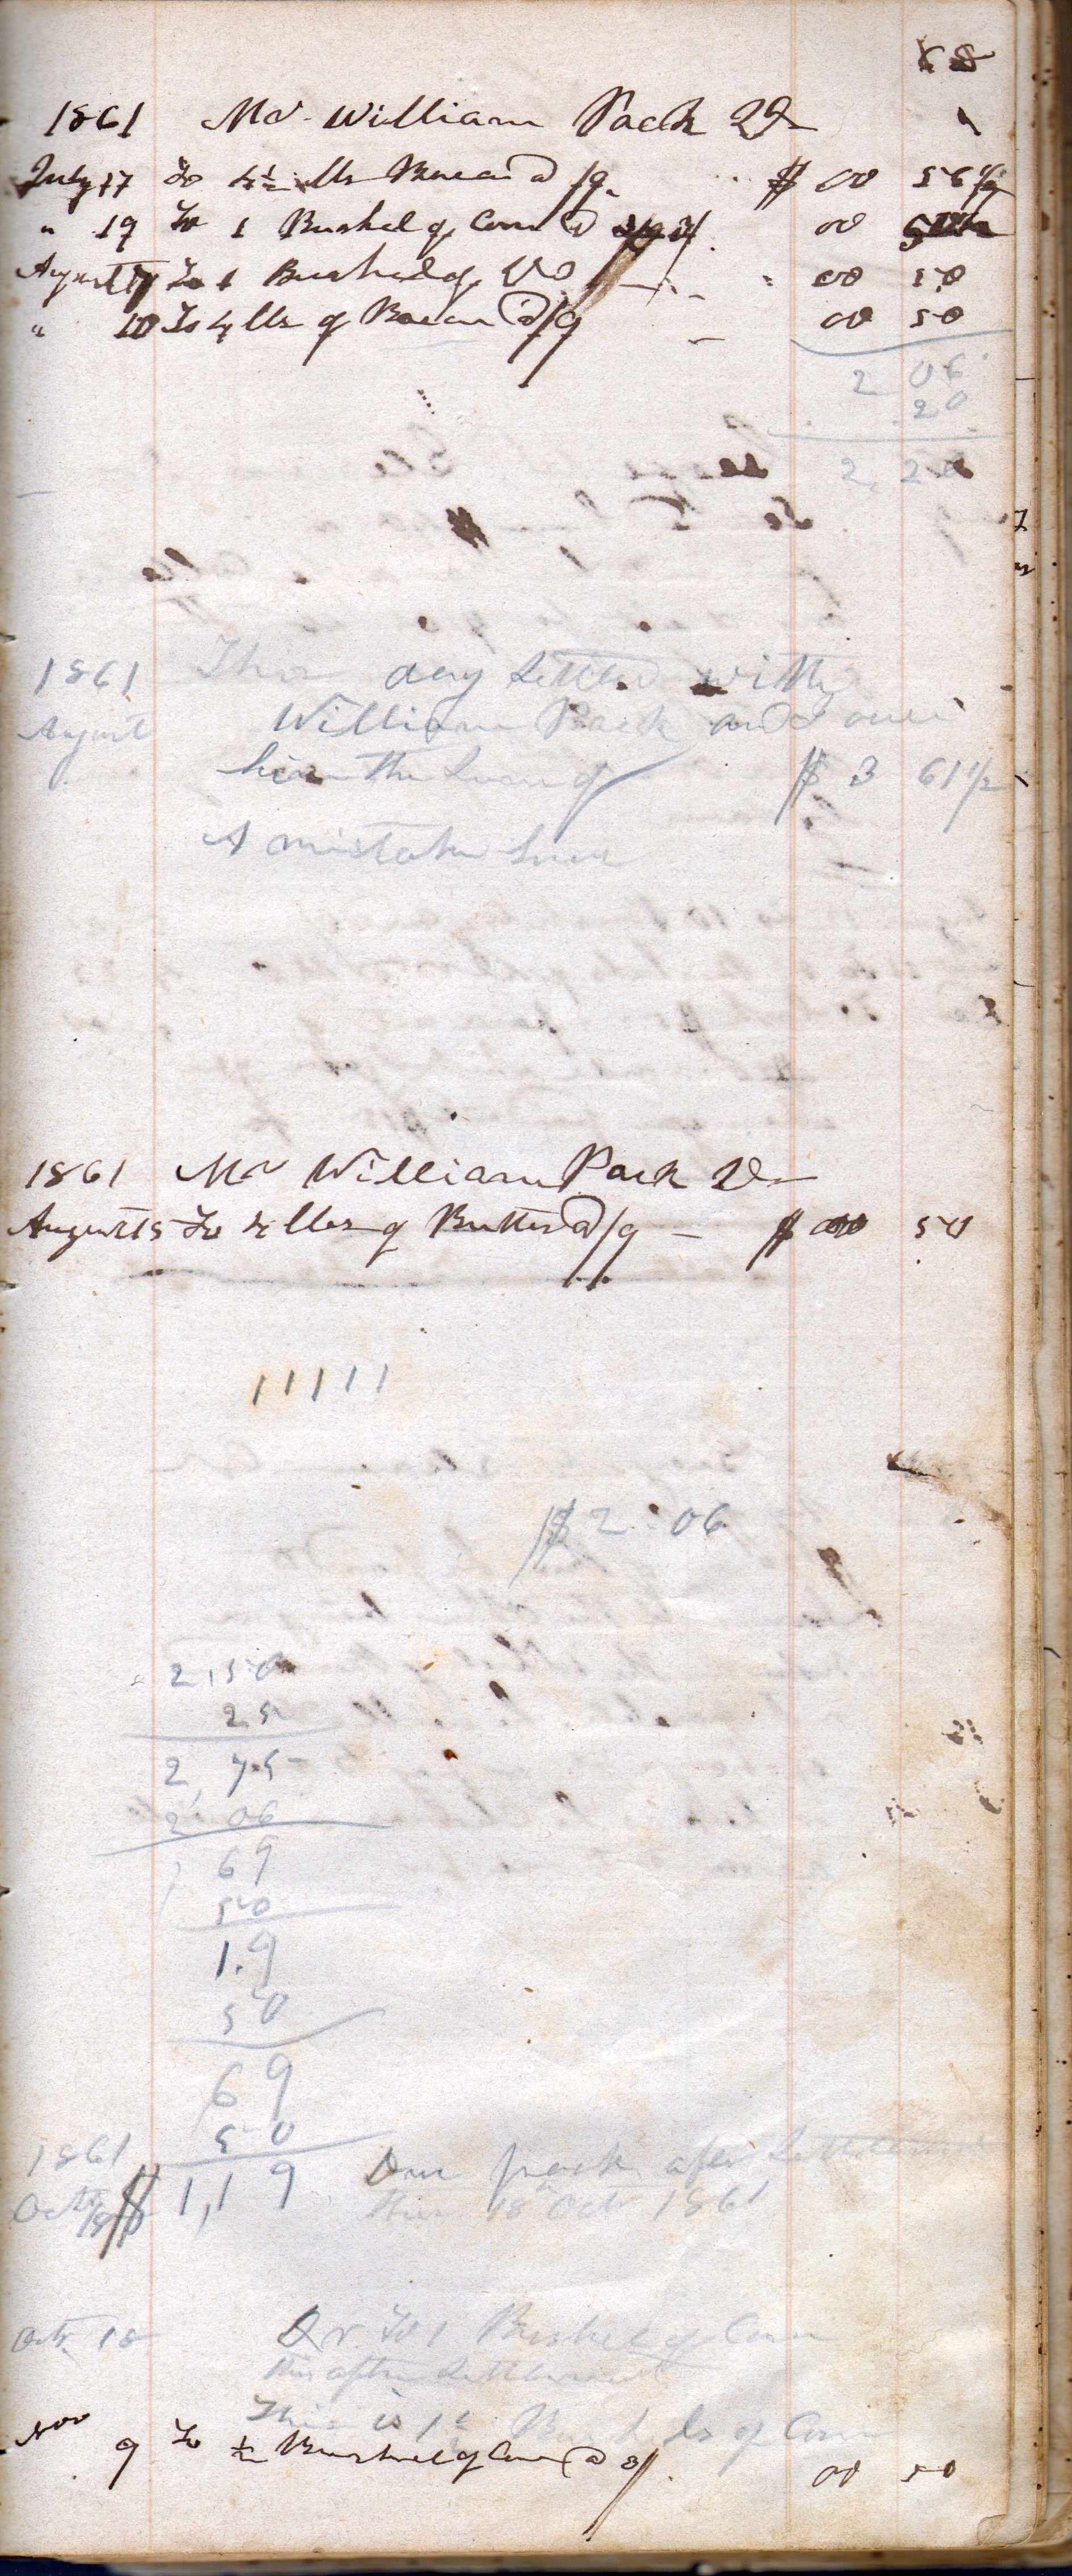 68
1861 Mr. William Pack Dr
July 17 To 4½ lbs Bacon @ /9 $ 00 56¼
" 19 To 1 Bushel of Corn @ 00
August To 1 Bushel of Do 00 50
" 10 To 4 lbs of Bacon @ /9 00 50
2 06
20
2, 2
1861 This day Settled with
August William Pack and owe
him the Sum of $ 3 61½
A mistake
1861 Mr William Pack Dr
August 15 To 4 lbs of Butter @ /9 $ 00 50
11111
$2.06
2,50
25
2,75
2 06
69
50
19
50
69
50
1861
Octr 18 $ 1,19 Due pack after Settlement
this 18th Octr 1861
Octr 18 Dr To 1 Bushel of Corn
this after Settlement
This is Bushels of Corn
Nov 9 To ½ Bushel of Corn @ 3/ 00 50